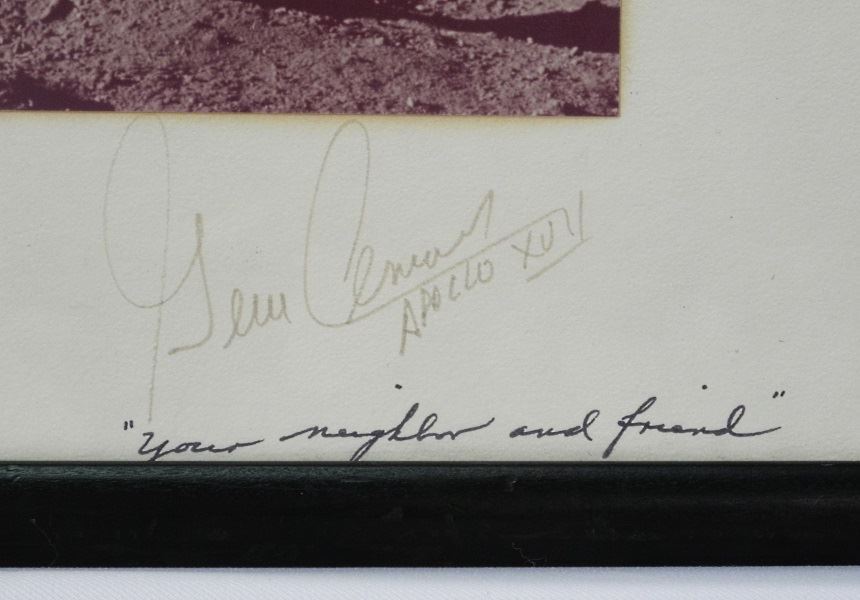 Gene Cernan
APOLLO XVII
"your neighbor and friend"